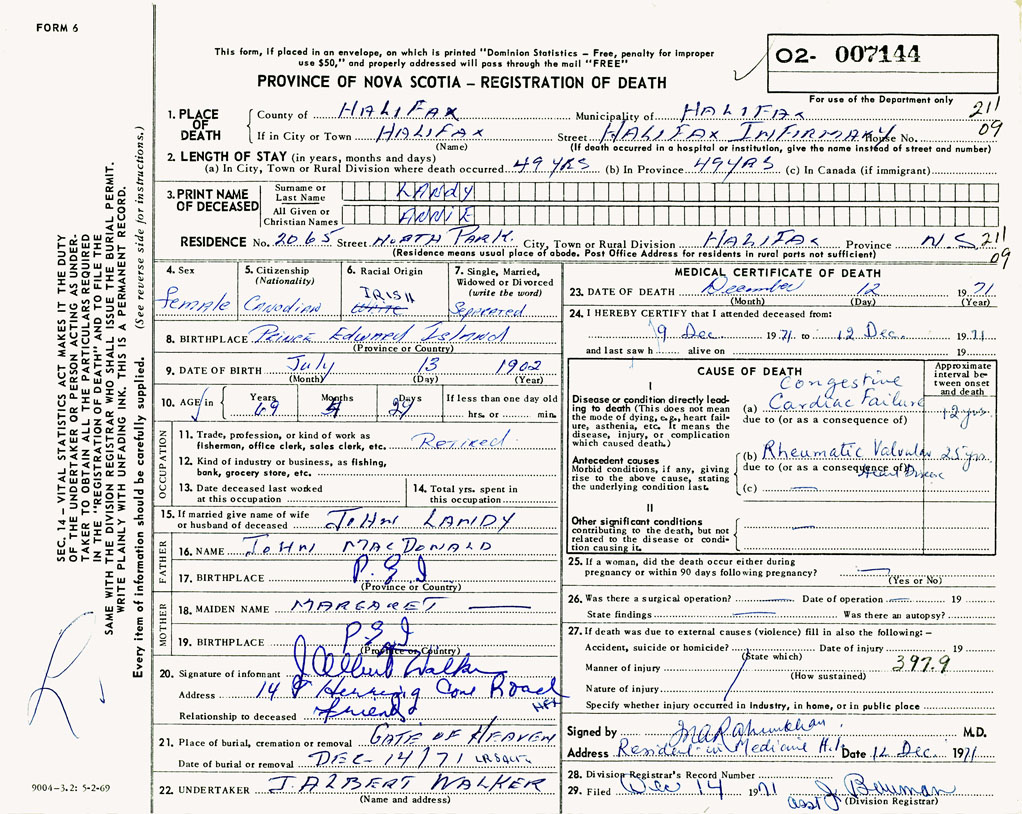 FORM 6
This form, if placed in an envelope, on which is printed "Dominion Statistics – Free, penalty for improper
use $50," and properly addressed will pass through the mail "FREE"
O2- 007144
PROVINCE OF NOVA SCOTIA – REGISTRATION OF DEATH
For use of the Department only
1. PLACE OF DEATH
County of HALIFAX Municipality of HALIFAX 211
If in City or Town HALIFAX Street HALIFAX INFIRMARY House No. 09
(Name) (If death occurred in a hospital or institution, give the name instead of street and number)
2. LENGTH OF STAY (in years, months and days)
(a) In City, Town or Rural Division where death occurred 49 YRS (b) In Province 49 YRS (c) In Canada (if immigrant)
3. PRINT NAME OF DECEASED
Surname or Last Name LANDY
All Given or Christian Names ANNIE
RESIDENCE No. 2065 Street NORTH PARK City, Town or Rural Division HALIFAX Province N.S 211
(Residence means usual place of abode. Post Office Address for residents in rural parts not sufficient) 09
4. Sex
Female
5. Citizenship
(Nationality)
Canadian
6. Racial Origin
IRISH
White
7. Single, Married,
Widowed or Divorced
(write the word)
Seperated
8. BIRTHPLACE PRINCE EDWARD ISLAND
(Province or Country)
9. DATE OF BIRTH July 13 1902
(Month) (Day) (Year)
10. AGE in Years Months Days If less than one day old
69 29 hrs. or min.
OCCUPATION
11. Trade, profession, or kind of work as
fisherman, office clerk, sales clerk, etc. Retired
12. Kind of industry or business, as fishing,
bank, grocery store, etc.
13. Date deceased last worked
at this occupation
14. Total yrs. spent in
this occupation
15. If married give name of wife
or husband of deceased JOHN LANDY
FATHER
16. NAME JOHN MACDONALD
17. BIRTHPLACE P.E.I
(Province or Country)
MOTHER
18. MAIDEN NAME MARGARET
19. BIRTHPLACE P.E.I
(Province or Country)
20. Signature of informant J Albert Walker
Address 14 Herring Cove Road HFX
Relationship to deceased friend
21. Place of burial, cremation or removal GATE OF HEAVEN
Date of burial or removal DEC - 14/71
22. UNDERTAKER J. ALBERT WALKER
(Name and address)
MEDICAL CERTIFICATE OF DEATH
23. DATE OF DEATH December 12 1971
(Month) (Day) (Year)
24. I HEREBY CERTIFY that I attended deceased from:
9 Dec 1971 to 12 Dec. 1971
and last saw h alive on 19
CAUSE OF DEATH
Approximate
interval be-
tween onset
and death
I
Disease or condition directly lead-
ing to death (This does not mean
the mode of dying, e.g., heart fail-
ure, asthenia, etc. It means the
disease, injury, or complication
which caused death.)
Congestive
(a) Cardiac Failure
due to (or as a consequence of)
12 yrs.
Antecedent causes
Morbid conditions, if any, giving
rise to the above cause, stating
the underlying condition last.
(b) Rheumatic Valvular 25 yrs.
due to (or as a consequence of) Heart Disease
(c)
II
Other significant conditions
contributing to the death, but not
related to the disease or condi-
tion causing it.
25. If a woman, did the death occur either during
pregnancy or within 90 days following pregnancy?
(Yes or No)
26. Was there a surgical operation? Date of operation 19
State findings Was there an autopsy?
27. If death was due to external causes (violence) fill in also the following: –
Accident, suicide or homicide? Date of injury 19
(State which)
Manner of injury 397.9
(How sustained)
Nature of injury
Specify whether injury occurred in industry, in home, or in public place
Signed by M.D.
Address Resident in Medicine H.I. Date 12 Dec 1971
28. Division Registrar's Record Number
29. Filed Dec 14 1971 asst J Bauman
(Division Registrar)
SEC. 14 – VITAL STATISTICS ACT MAKES IT THE DUTY
OF THE UNDERTAKER OR PERSON ACTING AS UNDER-
TAKER TO OBTAIN ALL THE PARTICULARS REQUIRED
IN THE "REGISTRATION OF DEATH" AND TO FILE THE
SAME WITH THE DIVISION REGISTRAR WHO SHALL ISSUE THE BURIAL PERMIT.
WRITE PLAINLY WITH UNFADING INK. THIS IS A PERMANENT RECORD.
Every item of information should be carefully supplied. (See reverse side for instructions.)
9004-3.2: 5-2-69